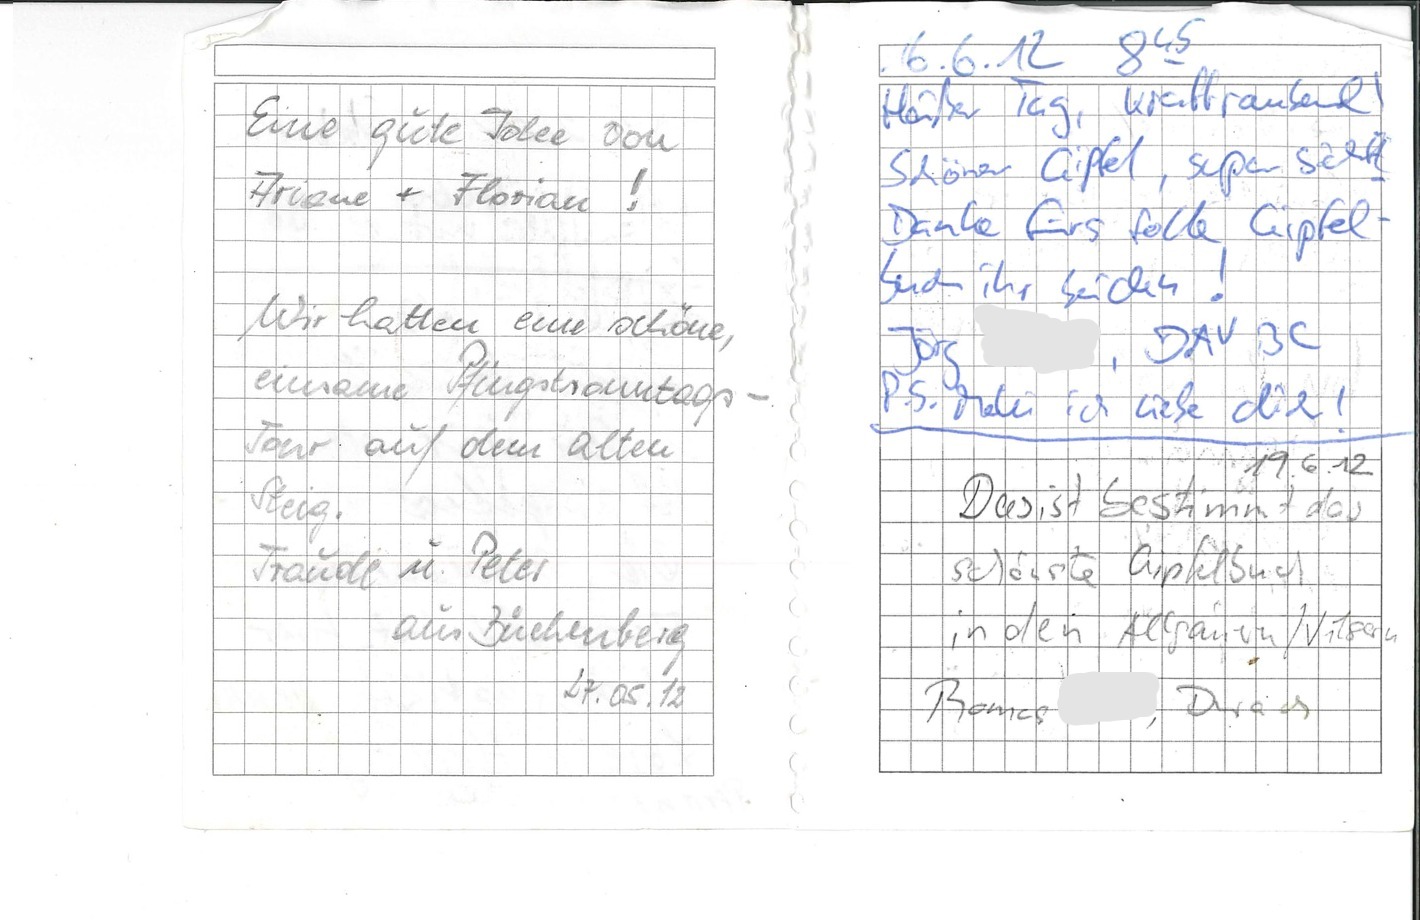 Eine gute Idee von
Ariane + Florian !
Wir hatten eine schöne,
einsame Pfingstsonntags-
Tour auf dem alten
Steig.
Traudl u. Peter
aus Buchenberg
27.05.12
16.6.12 8 45
Heißer Tag, kraftraubend!
Schöner Gipfel, super Sicht!
Danke fürs tolle Gipfel-
buch ihr beiden !
Jörg , DAV BC
P.S. ich liebe dich !
19.6.12
Das ist bestimmt das
schönste Gipfelbuch
in den Allgäuern/Vilsern
, Durach